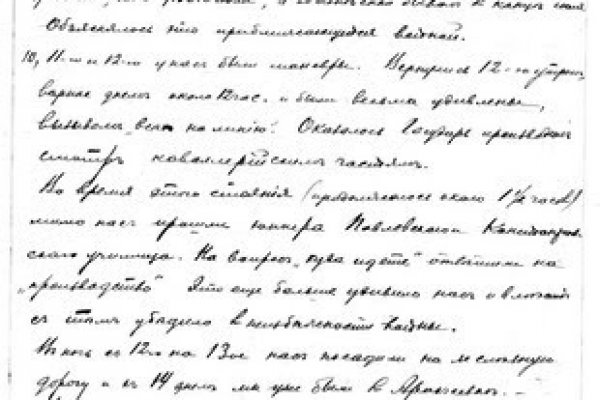 Объяснялось это приближающейся войной.
10, 11-го и 12-го у нас были маневры. Вернулись 12-го утром,
вернее днем около 12 час. и были весьма удивлены,
вызовом „всех на линию". Оказалось Государь производил
смотр кавалерийским частям.
Во время этого стояния (продолжалось около 1½ часов)
мимо нас прошли юнкера Павловского
училища. На вопрос „куда идете" ответили на
„производство" Это еще больше удивило нас и
с тем убедило в неизбежности войны.
В ночь с 12-го на 13-ое нас посадили на железную
дорогу и 14 днем мы уже были в